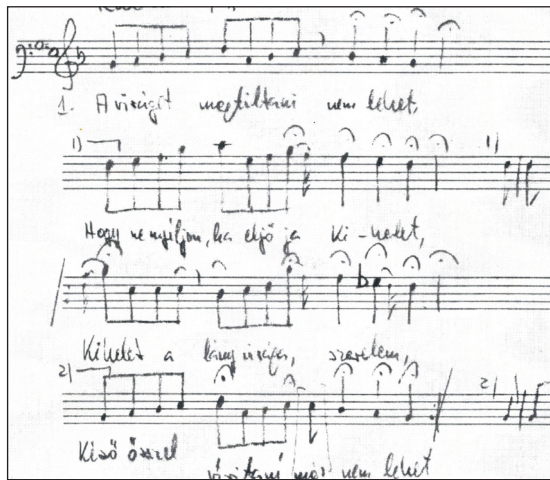 1. A virágot megtiltani nem lehet,
1) 1)
Hogy ne nyíljon, ha eljő a Ki-kelet,
Kikelet a lány virága, szerelem,
2) 2)
Késő ősszel
nem lehet